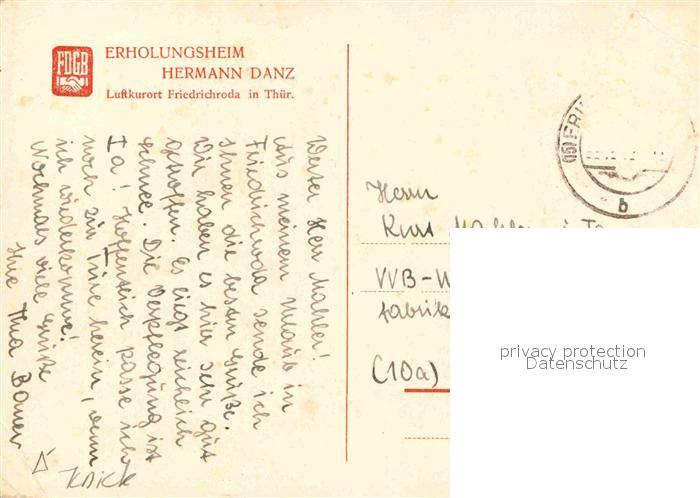 FDGB
ERHOLUNGSHEIM
HERMANN DANZ
Luftkurort Friedrichroda in Thür.
Werter Herr Mahler!
Aus meinem Urlaub in
Friedrichroda sende ich
Ihnen die besten Grüße.
Wir haben es hier sehr gut
getroffen. Es liegt reichlich
Schnee. Die Verpflegung ist
Ia! Hoffentlich passe ich
noch zur Türe herein, wenn
ich wiederkomme!
Nochmals viele Grüße
Ihre Thea Bauer
Knick
(15) FRI
b
Herrn
Kurt Mahler
VVB-W
fabrik
(10a)
privacy protection
Datenschutz